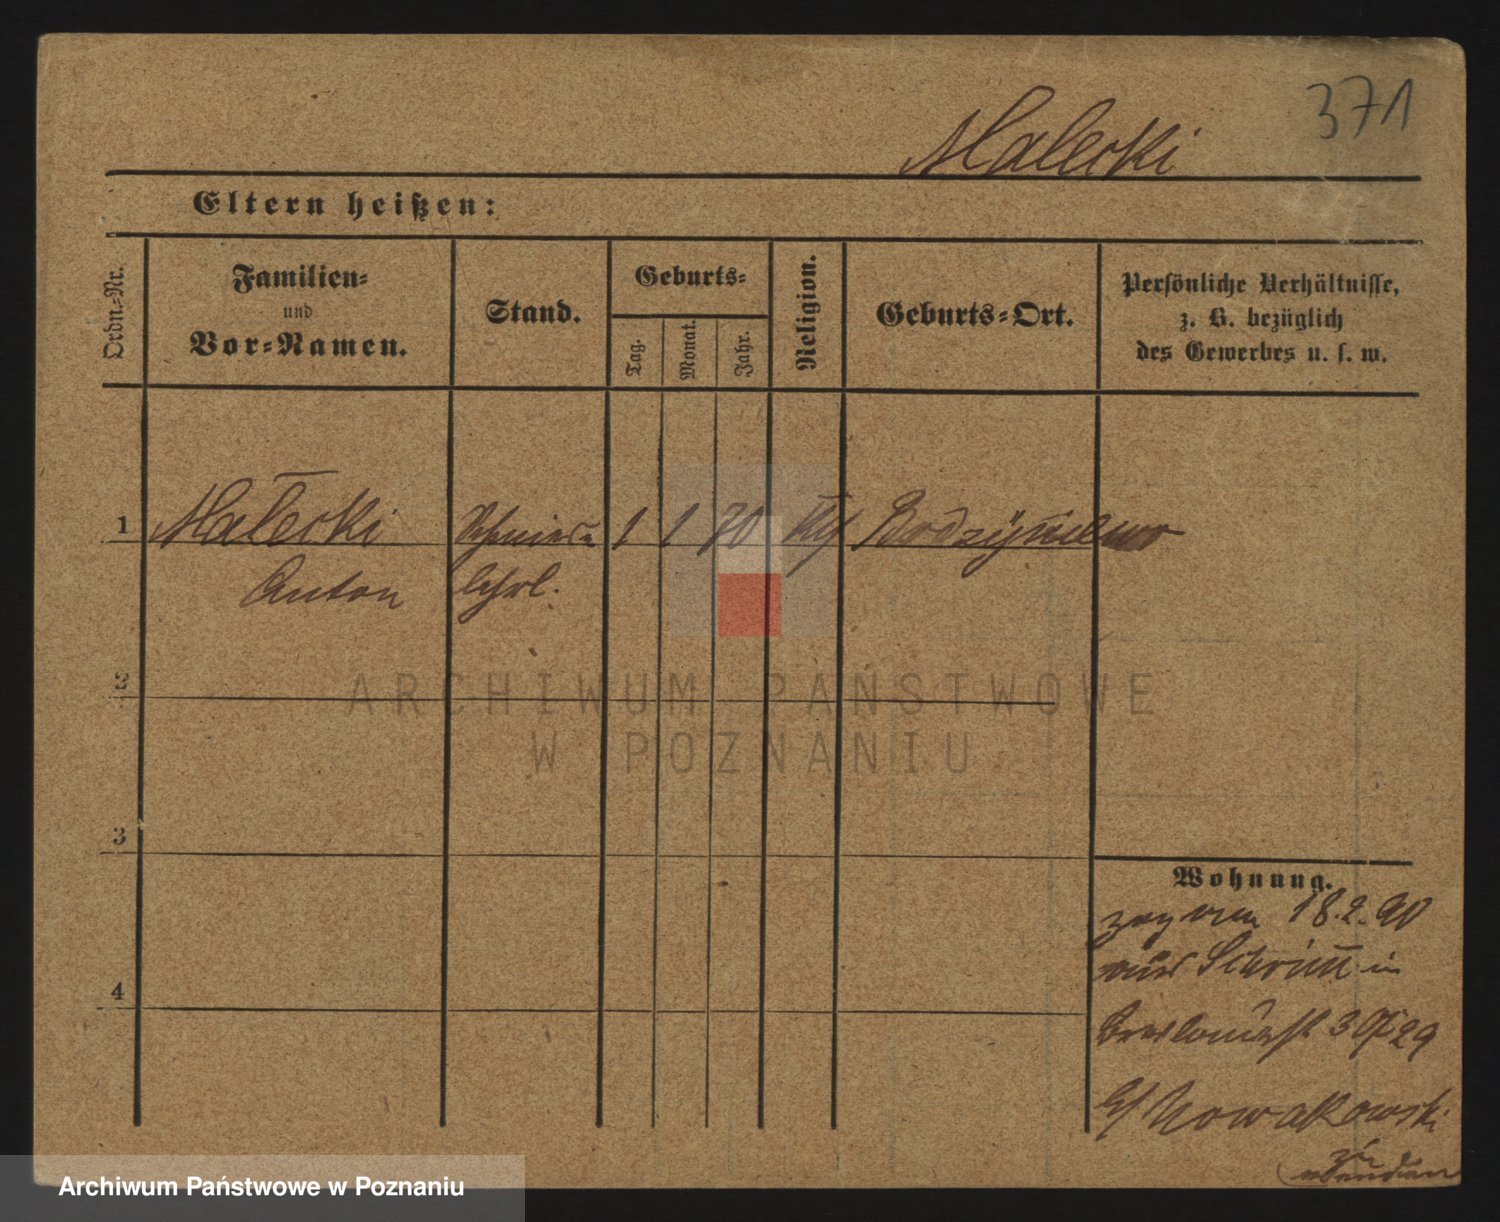 371
Malecki
Eltern heißen:
Ordn.-Nr.
Familien-
und
Vor-Namen.
Stand.
Geburts-
Tag.
Monat.
Jahr.
Religion.
Geburts-Ort.
Persönliche Verhältnisse,
z. B. bezüglich
des Gewerbes u. s. w.
1 Malecki 1 1 70 Bodzyniewo
Anton lehrl.
2
ARCHIWUM PAŃSTWOWE
W POZNANIU
3
Wohnung.
18.2.90
aus Schrimm in
4
29
b/ Nowakowski
Archiwum Państwowe w Poznaniu